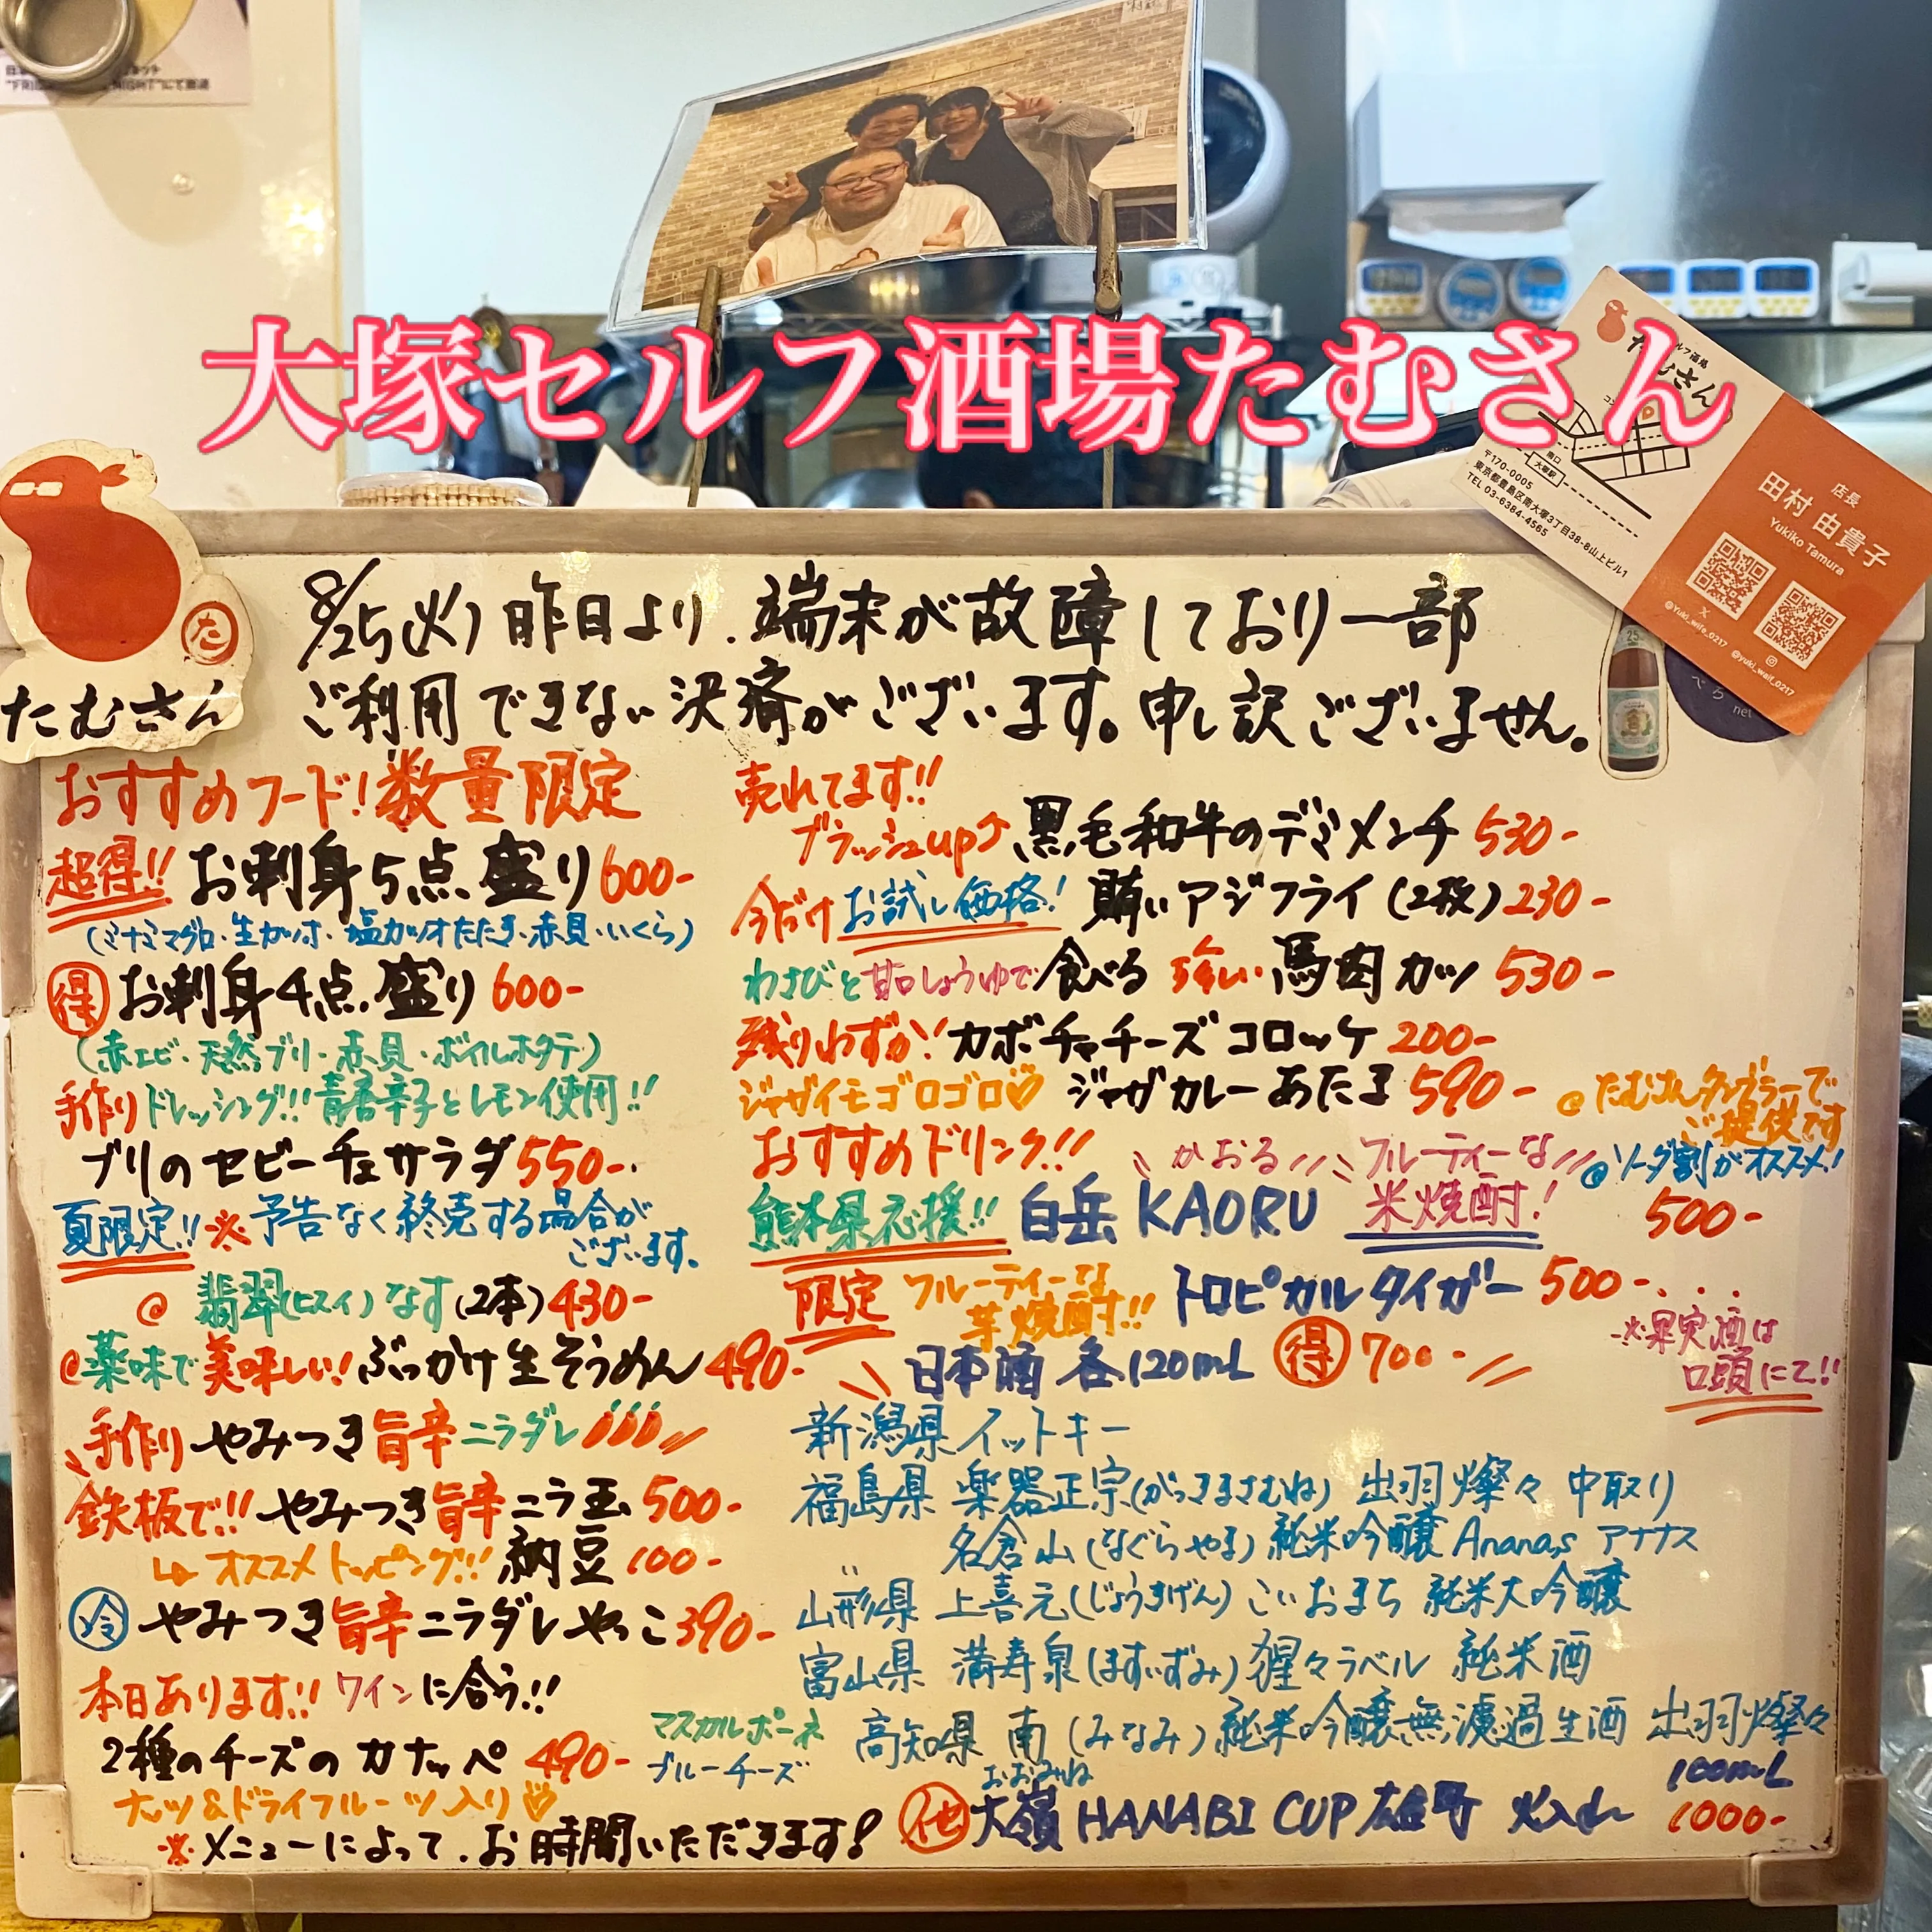 大塚セルフ酒場たむさん
セルフ酒場
たむさん
南口
大塚駅
〒170-0005
東京都豊島区南大塚3丁目38-8山上ビル1
TEL 03-6384-4565
店長
田村 由貴子
Yukiko Tamura
@Yuki_wife_0217
@yuki_waif_0217
た
たむさん
8/25(火) 昨日より、端末が故障しており一部
ご利用できない決済がございます。申し訳ございません。
おすすめフード!数量限定
超得!! お刺身5点盛り600-
(ミナミマグロ・生カツオ・塩カツオたたき・赤貝・いくら)
得 お刺身4点盛り600-
(赤エビ・天然ブリ・赤貝・ボイルホタテ)
手作りドレッシング!!青唐辛子とレモン使用!!
ブリのセビーチェサラダ550-
夏限定!!※予告なく終売する場合が
ございます。
@ 翡翠(ヒスイ)なす(2本)430-
@薬味で美味しい!ぶっかけ生そうめん490-
手作りやみつき旨辛ニラダレ
鉄板で!!やみつき旨辛ニラ玉500-
↳オススメトッピング!!納豆100-
冷 やみつき旨辛ニラダレやっこ390-
本日あります!!ワインに合う!!
2種のチーズのカナッペ490-
マスカルポーネ
ブルーチーズ
ナッツ&ドライフルーツ入り♡
※メニューによって、お時間いただきます!
売れてます!!
ブラッシュup↗黒毛和牛のデミメンチ530-
今だけお試し価格!賄いアジフライ(2枚)230-
わさびと甘口しょうゆで食べる 強い馬肉カツ530-
残りわずか!カボチャチーズコロッケ200-
ジャガイモゴロゴロ♡ジャガカレーあたま590-
@たむさんタンブラーで
ご提供です
おすすめドリンク!!
かおる フルーティーな
@ソーダ割がオススメ!
熊本県応援!! 白岳 KAORU 米焼酎! 500-
限定 フルーティーな
芋焼酎!! トロピカルタイガー 500-
※果実酒は
口頭にて!!
日本酒 各120mL 得 700-
新潟県 イットキー
福島県 楽器正宗(がっきまさむね) 出羽燦々 中取り
〃 名倉山(なぐらやま)純米吟醸 Ananas アナナス
山形県 上喜元(じょうきげん)こいおまち 純米大吟醸
富山県 満寿泉(ますいずみ)猩々ラベル 純米酒
高知県 南(みなみ)純米吟醸無濾過生酒 出羽燦々
おおみね
他 大嶺 HANABI CUP 雄町 火入れ
100mL
1000-